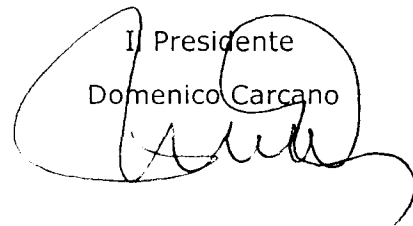 Il Presidente
Domenico Carcano